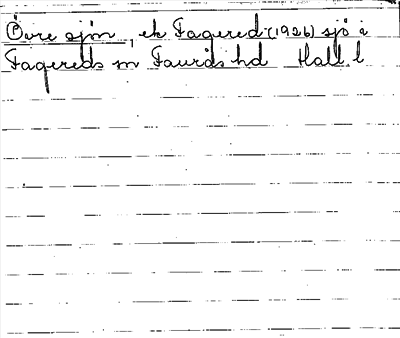 Övre sjön, ek Fagered (1926) sjö i
Fagereds sn Faurås hd Hall. l